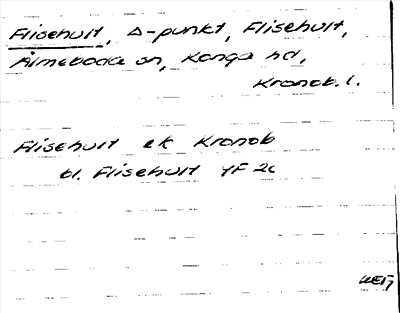 Flisehult, Δ-punkt, Flisehult,
Älmeboda sn, Konga hd,
Kronob. l.
Flisehult ek Kronob
bl. Flisehult 4F 2c